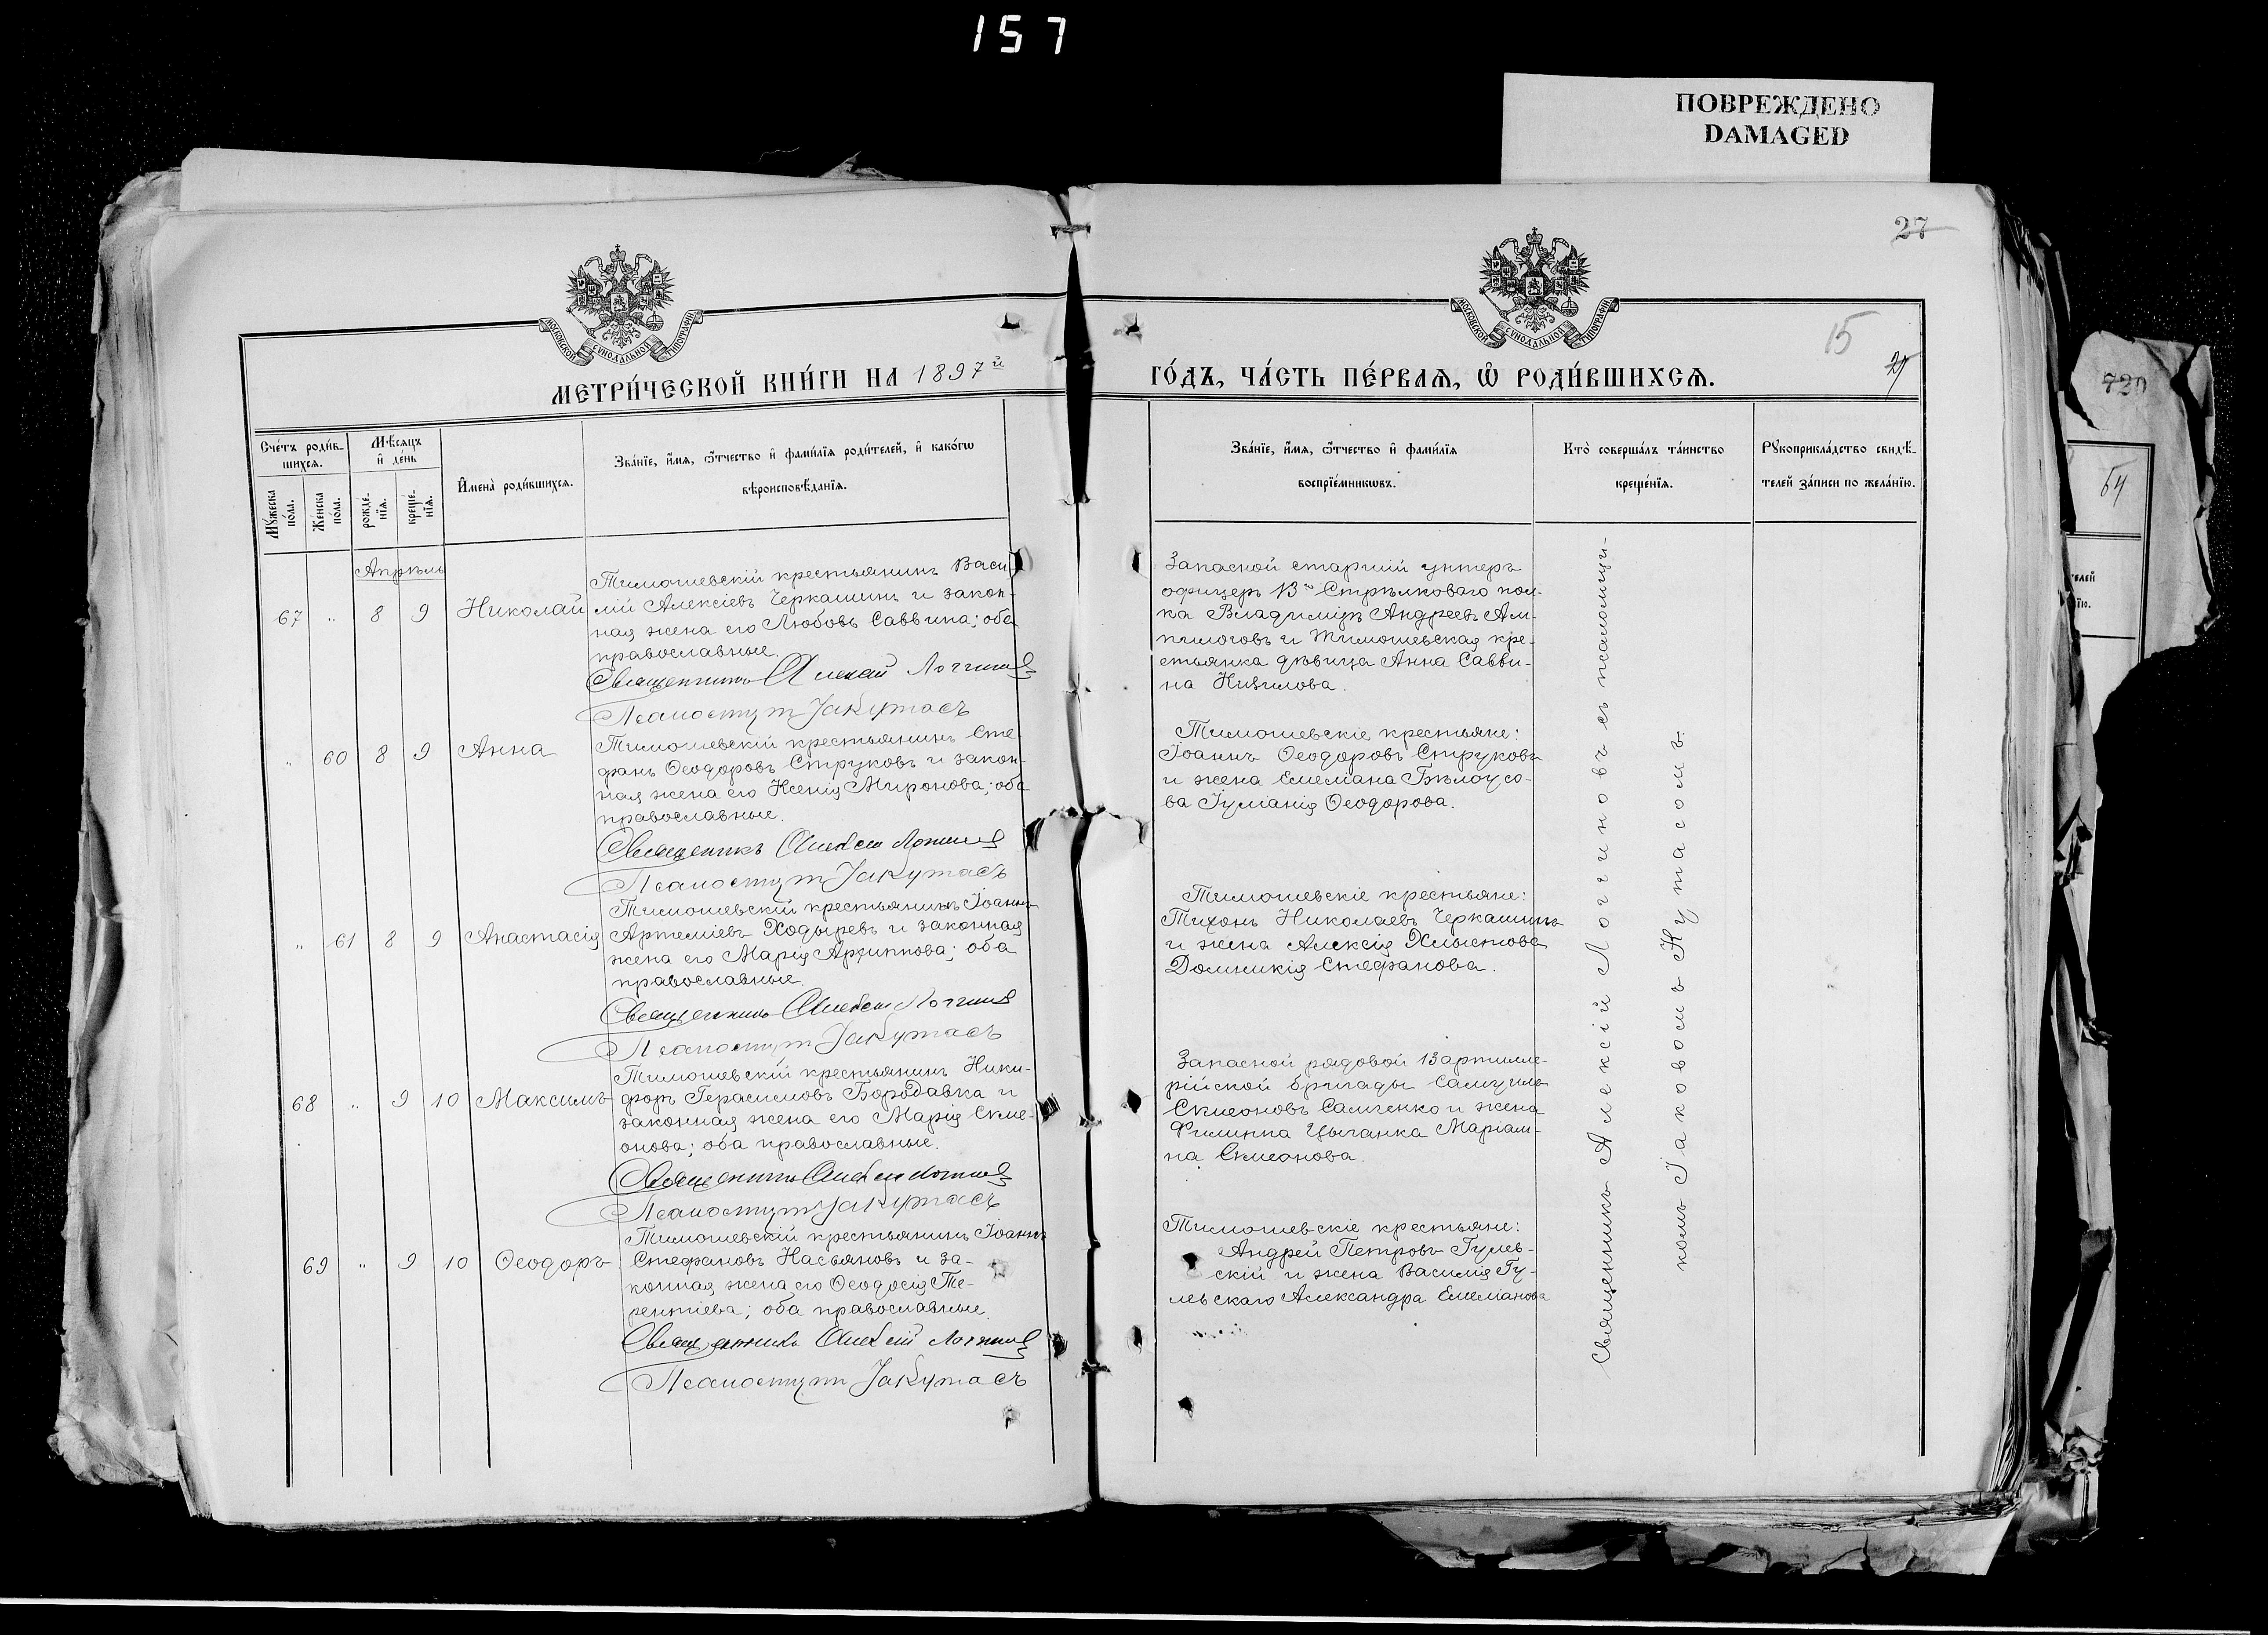 157
ПОВРЕЖДЕНО
DAMAGED
27
МОСКОВСКОЙ СѴНОДАЛЬНОЙ ТИПОГРАФІИ
МОСКОВСКОЙ СѴНОДАЛЬНОЙ ТИПОГРАФІИ
15
27
720
МЕТРИ́ЧЕСКОЙ КНИ́ГИ НА 1897й
ГО́ДЪ, ЧА́СТЬ ПЕ́РВАѦ, Ѽ РОДИ́ВШИХСѦ.
Сче́тъ роди́в-
шихсѧ.
Мѣсѧцъ
и҆ де́нь
Мꙋ́жеска
по́ла.
Же́нска
по́ла.
рожде-
нїѧ.
креще́-
нїѧ.
И҆мена̀ роди́вшихсѧ.
Зва́нїе, и҆́мѧ, ѻ҆́тчество и҆ фами́лїѧ роди́телей, и҆ како́гѡ
вѣроисповѣ́данїѧ.
Зва́нїе, и҆́мѧ, ѻ҆́тчество и҆ фами́лїѧ
воспрїе́мникѡвъ.
Кто̀ соверша́лъ та́инство
креще́нїѧ.
Рꙋкоприкла́дство свидѣ́-
телей за́писи по жела́нїю.
54
Апрѣль
67 " 8 9 Николай
Тимошевскій крестьянинъ Васи
лій Алексіевъ Черкашинъ и закон-
ная жена его Любовь Саввина; оба
православные.
Священникъ Алексій Логгинов
Псаломщ Іак Кутасъ
Запасной старшій унтеръ
офицеръ 13го Стрѣлковаго пол-
ка Владиміръ Андреевъ Ам-
пилоговъ и Тимошевская кре-
стьянка дѣвица Анна Савви-
на Кизилова.
" 60 8 9 Анна
Тимошевскій крестьянинъ Сте
фанъ Ѳеодоровъ Струковъ и закон-
ная жена его Ксенія Миронова; оба
православные.
Священникъ Алексій Логгинов
Псаломщ Іак Кутасъ
Тимошевскіе крестьяне:
Іоаннъ Ѳеодоровъ Струковъ
и жена Емеліана Бѣлоусо-
ва Іуліанія Ѳеодорова.
" 61 8 9 Анастасія
Тимошевскій крестьянинъ Іоаннъ
Артеміевъ Ходыревъ и законная
жена его Марія Архиппова; оба
православные.
Священникъ Алексій Логгинов
Псаломщ Іак Кутасъ
Тимошевскіе крестьяне:
Тихонъ Николаевъ Черкашинъ
и жена Алексія Хлыстова
Домникія Стефанова.
68 " 9 10 Максимъ
Тимошевскій крестьянинъ Ники-
форъ Герасимовъ Бородавка и
законная жена его Марія Симе-
онова; оба православные.
Священникъ Алексій Логгинов
Псаломщ Іак Кутасъ
Запасной рядовой 13 артилле-
рійской бригады Самуилъ
Симеоновъ Самченко и жена
Филиппа Цыганка Маріам-
на Симеонова.
69 " 9 10 Ѳеодоръ
Тимошевскій крестьянинъ Іоаннъ
Стефановъ Касьяновъ и за-
конная жена его Ѳеодосія Те-
рентіева; оба православные.
Священникъ Алексій Логгинов
Псаломщ Іак Кутасъ
Тимошевскіе крестьяне:
Андрей Петровъ Гулев-
скій и жена Василія Гу-
левскаго Александра Емеліанова
Священникъ Алексій Логгиновъ съ псаломщи-
комъ Іаковомъ Кутасомъ.